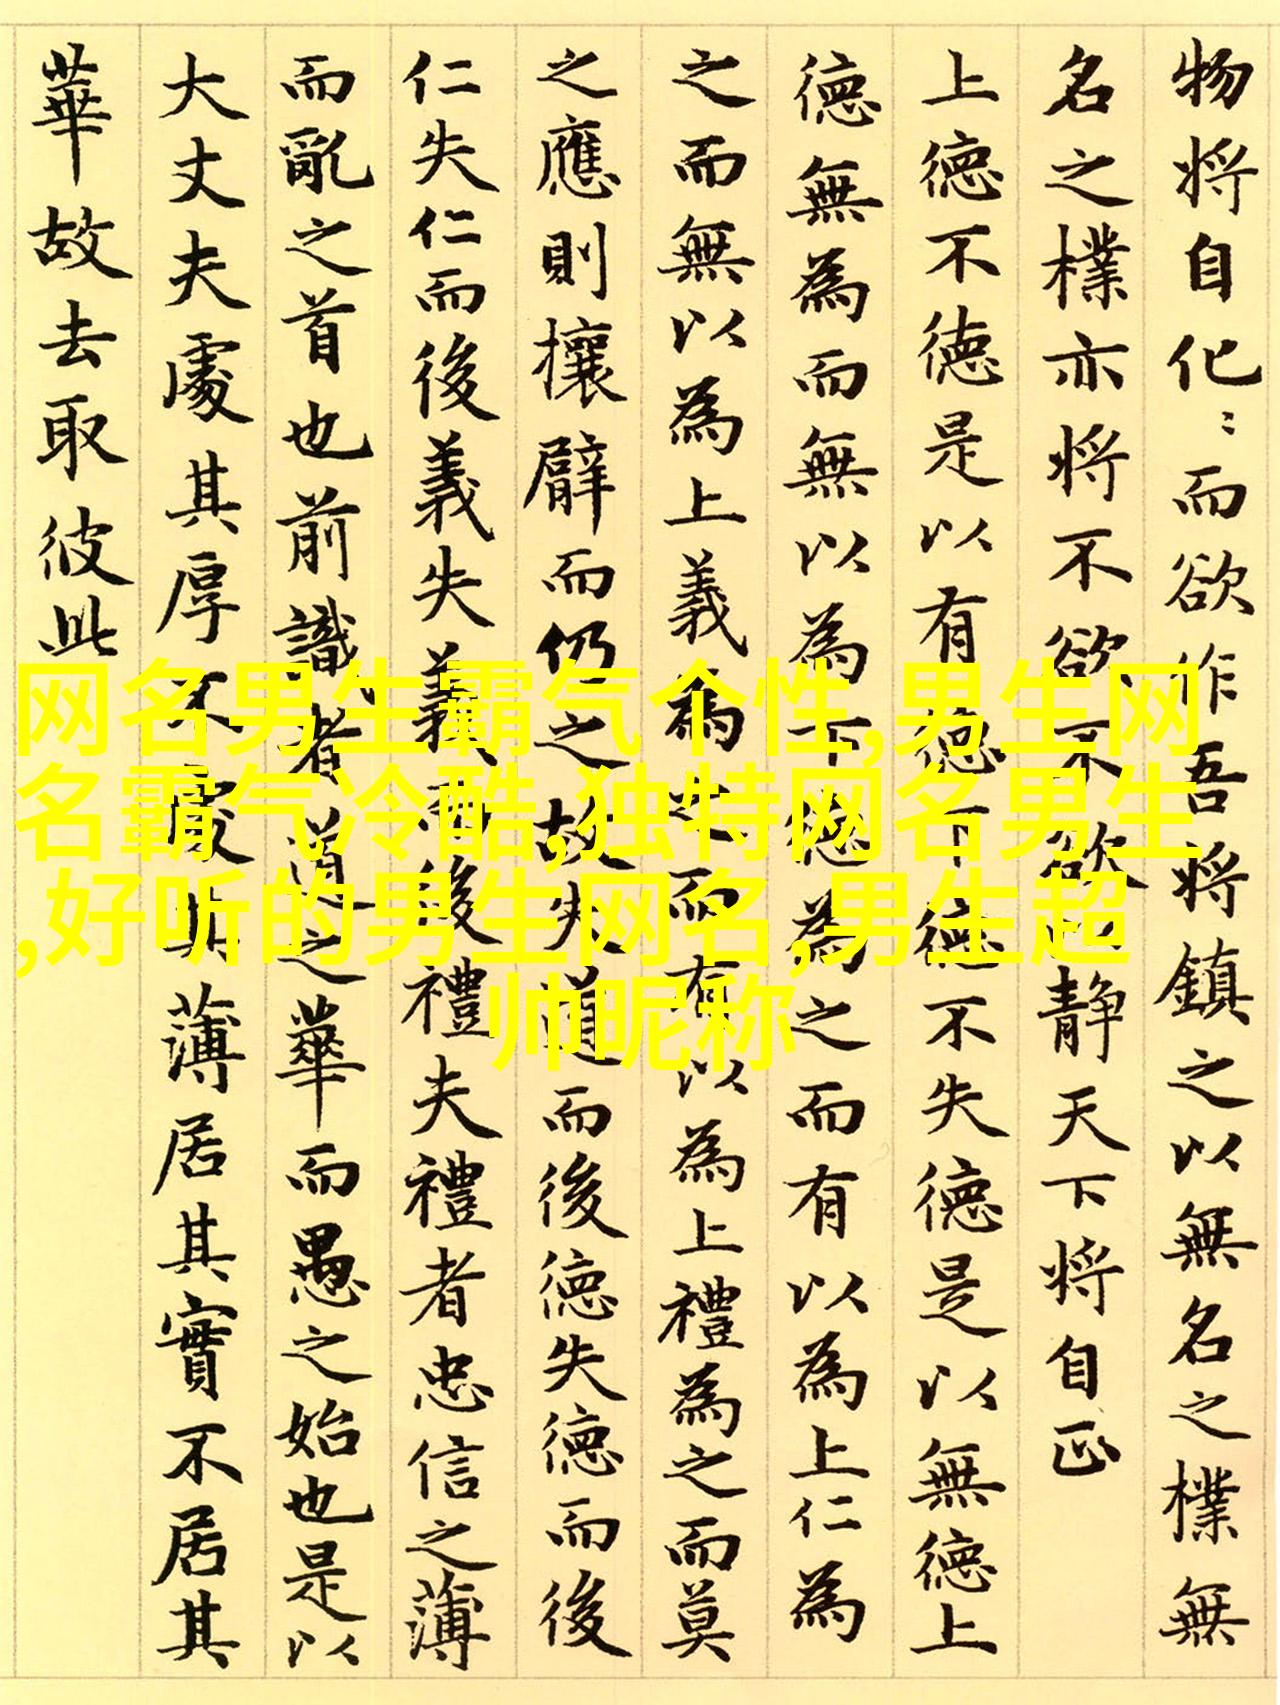 物将自化〻而欲作吾将鎮之以無名之樸無
名之樸亦将不欲不欲以静天下将自正
上徳不徳是以有徳下徳不失徳是以無徳上
徳無為而無以為下徳為之而有以為上仁為
之而無以為上義為之而有以為上禮為之而莫
之應則攘臂而仍之故失道而後徳失徳而後
仁失仁而後義失義而後禮夫禮者忠信之薄
而亂之首也前識者道之華而愚之始也是以
大丈夫處其厚不處其薄居其實不居其
華故去取彼此
网名男生霸气个性,男生网
名霸气冷酷,独特网名男生
,好听的男生网名,男生超
帅昵称